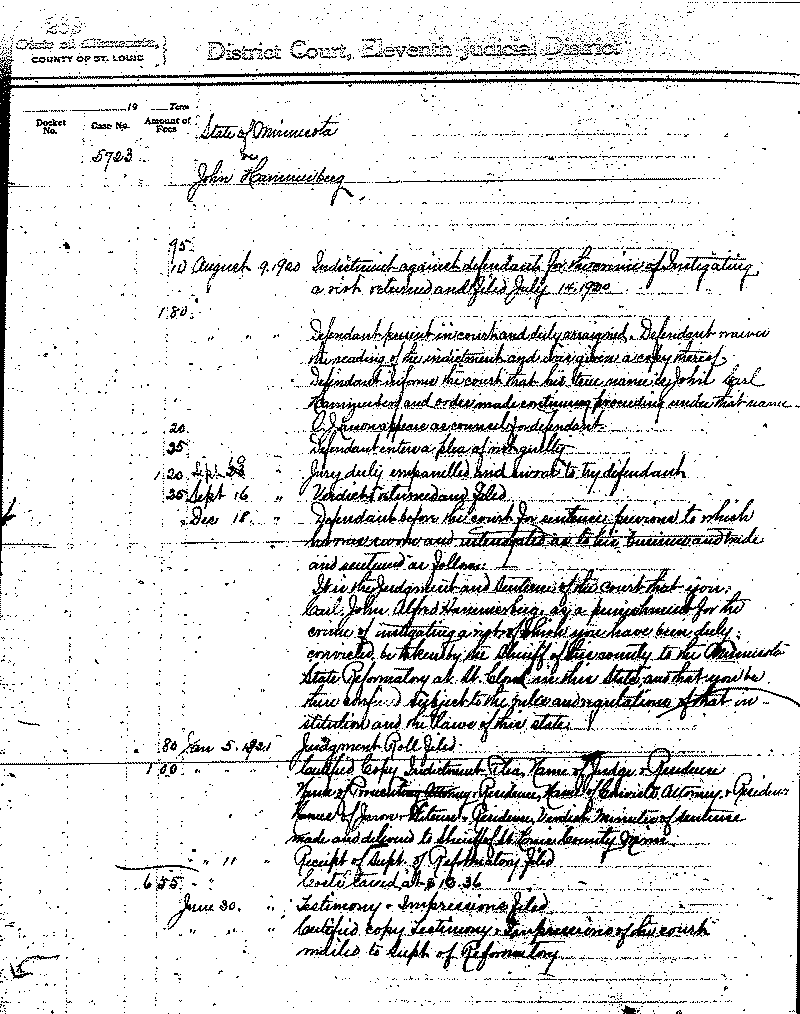 State of Minnesota,
COUNTY OF ST. LOUIS
District Court, Eleventh Judicial District
19 Term
Docket No. Case No. Amount of Fees
State of Minnesota
vs
5723
John Hammerberg
95
10 August 9. 1920 Indictment against defendant for the crime of Instigating
a riot returned and filed July 14. 1920
1 80
" " " Defendant present in court and duly arraigned. Defendant waives
the reading of the indictment and was given a copy thereof.
Defendant informs the court that his true name is John Carl
and order made continuing proceeding under that name
20 appears as counsel for defendant
25 Defendant enters a plea of not guilty
1 20 Sept " Jury duly empanelled and sworn to try defendant
25 Sept 16 " Verdict returned and filed
Dec 18. " Defendant before the court for sentence previous to which
he was sworn and interrogated as to his business and trade
and sentenced as follows:
It is the Judgment and Sentence of the court that you,
Carl John Alfred Hammerberg, as a punishment for the
crime of instigating a riot of which you have been duly
convicted, be taken by the Sheriff of this county to the Minnesota
State Reformatory at St. Cloud in this State and that you be
there confined subject to the rules and regulations of that in-
stitution and the laws of this state.
80 Jan 5. 1921 Judgment Roll filed
1 00 " " " Certified Copy Indictment, Plea, Name of Judge & Residence
Name of Prosecuting Attorney & Residence, Name of Attorney & Residence
Names of Jurors & Residence, Verdict, Minutes of sentence
made and delivered to Sheriff of St. Louis County Minn.
" 11 " Receipt of Supt. of Reformatory filed
6 55 " Costs taxed at $
June 30. " Testimony & Impressions filed
" " " Certified copy Testimony & Impressions of the court
mailed to Supt of Reformatory